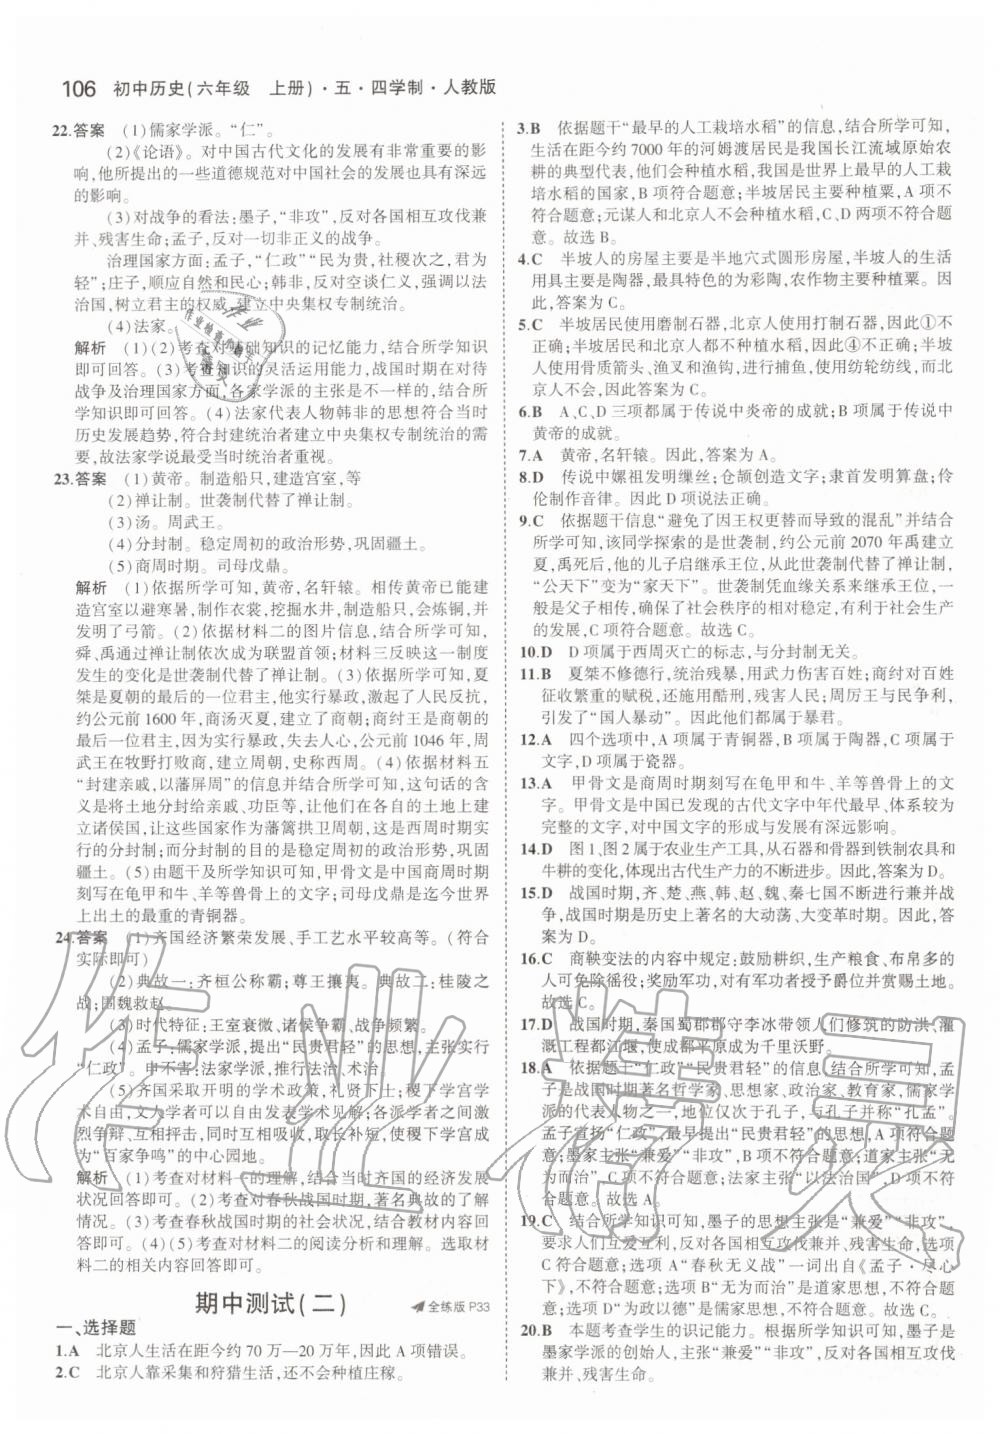 106 初中历史(六年级 上册)·五·四学制·人教版
22.答案 (1)儒家学派。“仁”。
(2)《论语》。对中国古代文化的发展有非常重要的影
响,他所提出的一些道德规范对中国社会的发展有很大
的影响。
(3)对战争的看法:墨子,“非攻”,反对各国相互攻伐兼
并、残害生命;孟子,反对一切非正义的战争。
治理国家方面:孟子,“仁政”“民为贵,社稷次之,君为
轻”;庄子,顺应自然和民心;韩非,反对空谈仁义,提倡以法
治国,树立君主的权威,建立中央集权专制统治。
(4)法家。
解析 (1)(2)考查对基础知识的记忆能力,结合所学知识
即可回答。(3)考查知识的灵活运用能力,战国时期在对待
战争及治理国家方面,各家学派的主张是不一样的,结合所
学知识即可回答。(4)法家代表人物韩非的思想符合当时
历史发展趋势,符合封建统治者建立中央集权专制统治的需
要,故法家学说最受当时统治者重视。
23.答案 (1)黄帝。制造船只,建造宫室,等
(2)禅让制。世袭制代替了禅让制。
(3)汤。周武王。
(4)分封制。稳定周初的政治形势,巩固疆土。
(5)商周时期。司母戊鼎。
解析 (1)依据所学可知,黄帝,名轩辕。相传黄帝已能建
造宫室以避寒暑,制作衣裳,挖掘水井,制造船只,会炼铜,并
发明了弓箭。(2)依据材料二的图片信息,结合所学可知,
舜、禹通过禅让制依次成为联盟首领;材料三反映这一制度
发生的变化是世袭制代替了禅让制。(3)依据所学可知,夏
桀是夏朝的最后一位君主,他实行暴政,激起了人民的反抗,
约公元前1600年,商汤灭夏,建立了商朝;商纣王是商朝的
最后一位君主,因实行暴政,失去民心,约公元前1046年,周
武王在牧野打败商军,商朝灭亡,周朝建立,史称西周。(4)依据材料五
“封建亲戚,以藩屏周”的信息并结合所学可知,这句话的含
义是将土地分封给亲戚、功臣等,让他们在自己的领地上建
立诸侯国,让这些国家作为藩篱拱卫周朝,这是西周时期实
行的分封制;而分封制的目的是稳定周初的政治形势,巩固
疆土。(5)由题干及所学知识可知,甲骨文是中国商周时期
刻写在龟甲和牛、羊等兽骨上的文字;司母戊鼎是迄今世界
上出土的最重的青铜器。
24.答案 (1)齐国经济繁荣发展、手工艺水平较高等。(符合
实际即可)
(2)典故一:齐桓公称霸;尊王攘夷。典故二:桂陵之
战;围魏救赵。
(3)时代特征:王室衰微、诸侯争霸、战争频繁。
(4)孟子:儒家学派,提出“民贵君轻”的思想,主张实行
“仁政”。申不害:法家学派,推行法治、术治。
(5)齐国采取开明的学术政策,礼贤下士;稷下学宫学
术自由,文人名士发表学术见解;各派学者之间激
烈争辩、互相抨击,同时相互吸收,取长补短,使稷下学宫成
为“百家争鸣”的中心园地。
解析 (1)考查对材料一的理解,结合当时齐国的经济发展
状况回答即可。(2)考查对春秋战国时期,著名典故的了解
情况。(3)考查春秋战国时期的社会状况,结合教材内容回
答即可。(4)(5)考查对材料二的阅读分析和理解。选取材
料二的相关内容回答即可。
期中测试(二) 全练版 P33
一、选择题
1.A 北京人生活在距今约70万—20万年,因此A项错误。
2.C 北京人靠采集和狩猎生活,还不会种植庄稼。
3.B 依据题干“最早的人工栽培水稻”的信息,结合所学可知,
生活在距今约7000年的河姆渡居民是我国长江流域原始农
耕的典型代表,他们会种植水稻,我国是世界上最早人工栽
培水稻的国家,B项符合题意;半坡居民主要种植粟,A项不
符合题意;元谋人和北京人不会种植水稻,C、D两项不符合题
意。故选B。
4.C 半坡人的房屋主要是半地穴式圆形房屋,半坡人的生活
用具主要是陶器,最具特色的为彩陶,农作物主要种植粟。因
此,答案为C。
5.C 半坡居民使用磨制石器,北京人使用打制石器,因此①不
正确;半坡居民和北京人都不种植水稻,因此④不正确;半坡
人使用骨质箭头、渔叉和渔钩,进行捕鱼,使用纺轮纺线,而北
京人不会,因此答案为C。
6.B A、C、D三项都属于传说中炎帝的成就;B项属于传说中
黄帝的成就。
7.A 黄帝,名轩辕。因此,答案为A。
8.D 传说中嫘祖发明缫丝;仓颉创造文字;隶首发明算盘;伶
伦制作音律。因此D项说法正确。
9.C 依据题干信息“避免了因王权更替而导致的混乱”并结合
所学可知,该同学探索的是世袭制,约公元前2070年禹建立
夏,禹死后,他的儿子启继承王位,从此世袭制代替禅让制,
“公天下”变为“家天下”。世袭制凭血缘关系来继承王位,一
般是父子相传,保障了社会秩序的相对稳定,有利于社会生产
的发展,C项符合题意。故选C。
10.D D项属于西周灭亡的标志,与分封制无关。
11.B 夏桀不修德行,统治残暴,用武力伤害百姓;商纣对百姓
征收繁重的赋税,还施用酷刑,残害人民;周厉王与民争利,
引发了“国人暴动”。因此他们都属于暴君。
12.A 四个选项中,A项属于青铜器,B项属于陶器,C项属于
文字,D项属于瓷器。
13.A 甲骨文是商周时期刻写在龟甲和牛、羊等兽骨上的文
字。甲骨文是中国已发现的古代文字中年代最早、体系较为
完整的文字,对中国文字的形成与发展有深远影响。
14.D 图1、图2属于农业生产工具,从石器和骨器到铁制农具和
牛耕的变化,体现出古代生产力的不断进步。因此,答案为D。
15.D 战国时期,齐、楚、燕、韩、赵、魏、秦七国不断进行兼并战
争,战国时期是历史上著名的大动荡、大变革时期。因此,答
案为D。
16.C 商鞅变法的内容中规定:鼓励耕织,生产粮食、布帛多的
人可免除徭役;奖励军功,对有军功者授予爵位并赏赐土地。
故选C。
17.D 战国时期,秦国蜀郡郡守李冰带领人们修筑的防洪、灌
溉工程都江堰,使成都平原变成为千里沃野。
18.A 依据题干“仁政”“民贵君轻”的信息,结合所学可知,孟
子是战国时期著名哲学家、思想家、政治家、教育家,儒家学
派的代表人物之一,地位仅次于孔子,与孔子并称“孔孟”。
孟子宣扬“仁政”,提出“民贵君轻”的思想,A项符合题
意;墨家主张“兼爱”“非攻”,B项不符合题意;道家主张“无
为而治”,C项不符合题意;法家主张“以法治国”,D项不符
合题意。故选A。
19.C 结合所学知识可知,墨子的主张是“兼爱”“非攻”,
要求人们互爱互利,反对各国相互攻伐兼并、残害生命,
C项符合题意;选项A“春秋无义战”一词出自《孟子·尽心
下》,不符合题意;选项B“无为而治”是道家思想,不符合题
意;选项D“为政以德”是儒家思想,不符合题意。
20.B 本题考查学生的识记能力。根据所学可知,墨子是
墨家学派创始人,主张“兼爱”“非攻”,反对各国相互攻伐
兼并、残害生命。
作业精灵